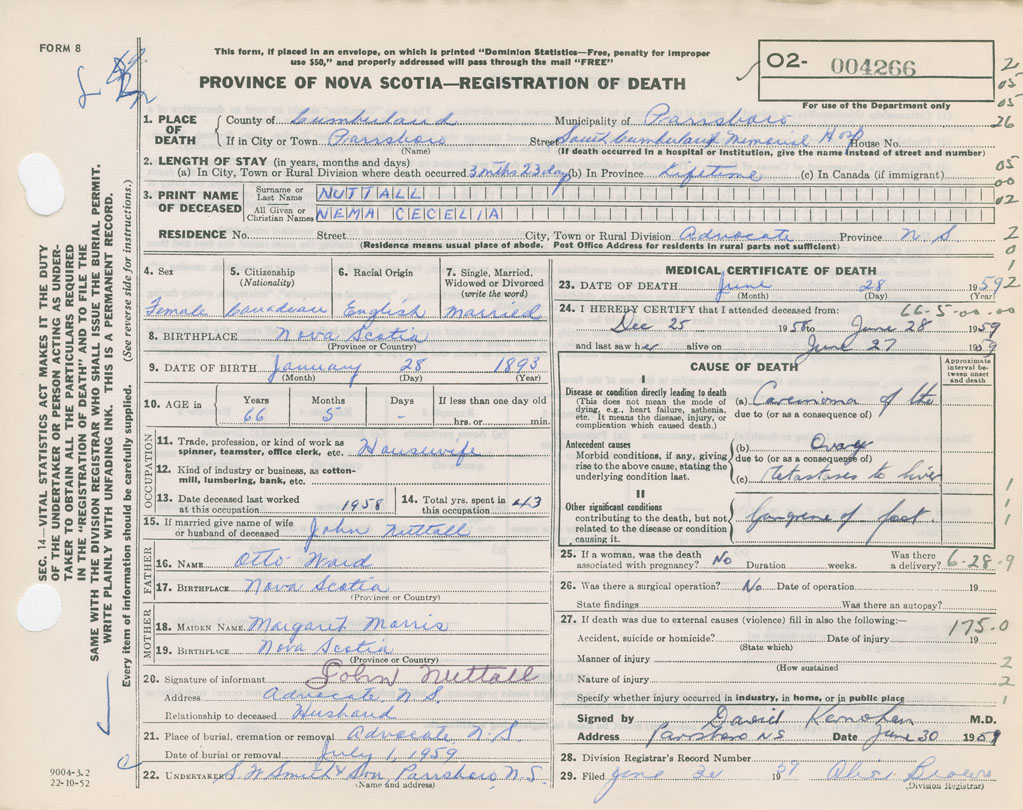 FORM 8
This form, if placed in an envelope, on which is printed "Dominion Statistics—Free, penalty for improper
use $50," and properly addressed will pass through the mail "FREE"
PROVINCE OF NOVA SCOTIA—REGISTRATION OF DEATH
O2- 004266
For use of the Department only
2
05
05
26
05
00
02
2
0
1
2
1. PLACE OF DEATH
County of Cumberland Municipality of Parrsboro
If in City or Town Parrsboro Street South Cumberland Memorial Hosp House No.
(Name) (If death occurred in a hospital or institution, give the name instead of street and number)
2. LENGTH OF STAY (in years, months and days)
(a) In City, Town or Rural Division where death occurred 3 mths 23 days (b) In Province Lifetime (c) In Canada (if immigrant)
3. PRINT NAME OF DECEASED
Surname or Last Name NUTTALL
All Given or Christian Names NEMA CECELIA
RESIDENCE No. Street City, Town or Rural Division Advocate Province N S
(Residence means usual place of abode. Post Office Address for residents in rural parts not sufficient)
4. Sex 5. Citizenship (Nationality) 6. Racial Origin 7. Single, Married, Widowed or Divorced (write the word)
Female Canadian English Married
8. BIRTHPLACE Nova Scotia
(Province or Country)
9. DATE OF BIRTH January 28 1893
(Month) (Day) (Year)
10. AGE in Years Months Days If less than one day old
66 5 - hrs. or min.
OCCUPATION
11. Trade, profession, or kind of work as
spinner, teamster, office clerk, etc. Housewife
12. Kind of industry or business, as cotton-
mill, lumbering, bank, etc.
13. Date deceased last worked at this occupation 1958 14. Total yrs. spent in this occupation 43
15. If married give name of wife
or husband of deceased John Nuttall
FATHER
16. NAME Otto Ward
17. BIRTHPLACE Nova Scotia
(Province or Country)
MOTHER
18. MAIDEN NAME Margaret Morris
19. BIRTHPLACE Nova Scotia
(Province or Country)
20. Signature of informant John Nuttall
Address Advocate N.S.
Relationship to deceased Husband
21. Place of burial, cremation or removal Advocate N.S
Date of burial or removal July 1, 1959
22. UNDERTAKER S. W. Smith & Son, Parrsboro, N.S.
(Name and address)
MEDICAL CERTIFICATE OF DEATH
23. DATE OF DEATH June 28 1959
(Month) (Day) (Year)
24. I HEREBY CERTIFY that I attended deceased from: 66-5-00-00
Dec 25 1958 to June 28 1959
and last saw her alive on June 27 1959
CAUSE OF DEATH
Approximate interval between onset and death
I
Disease or condition directly leading to death
(This does not mean the mode of
dying, e.g., heart failure, asthenia,
etc. It means the disease, injury, or
complication which caused death.)
(a) Carcinoma of the
due to (or as a consequence of)
Antecedent causes
Morbid conditions, if any, giving
rise to the above cause, stating the
underlying condition last.
(b) Ovary
due to (or as a consequence of)
(c) Metastases to liver
II
Other significant conditions
contributing to the death, but not
related to the disease or condition
causing it.
Gangrene of foot.
1
1
1
25. If a woman, was the death
associated with pregnancy? No Duration weeks. Was there a delivery? 6-28-9
26. Was there a surgical operation? No Date of operation 19
State findings Was there an autopsy?
27. If death was due to external causes (violence) fill in also the following:—
175-0
Accident, suicide or homicide? Date of injury 19
(State which)
Manner of injury 2
(How sustained
Nature of injury 2
Specify whether injury occurred in industry, in home, or in public place 1
Signed by David Kernohan M.D.
Address Parrsboro N S Date June 30 1959
28. Division Registrar's Record Number
29. Filed June 30 1959
(Division Registrar)
SEC. 14—VITAL STATISTICS ACT MAKES IT THE DUTY
OF THE UNDERTAKER OR PERSON ACTING AS UNDER-
TAKER TO OBTAIN ALL THE PARTICULARS REQUIRED
IN THE "REGISTRATION OF DEATH" AND TO FILE THE
SAME WITH THE DIVISION REGISTRAR WHO SHALL ISSUE THE BURIAL PERMIT.
WRITE PLAINLY WITH UNFADING INK. THIS IS A PERMANENT RECORD.
Every item of information should be carefully supplied. (See reverse side for instructions.)
9004-3.2
22-10-52